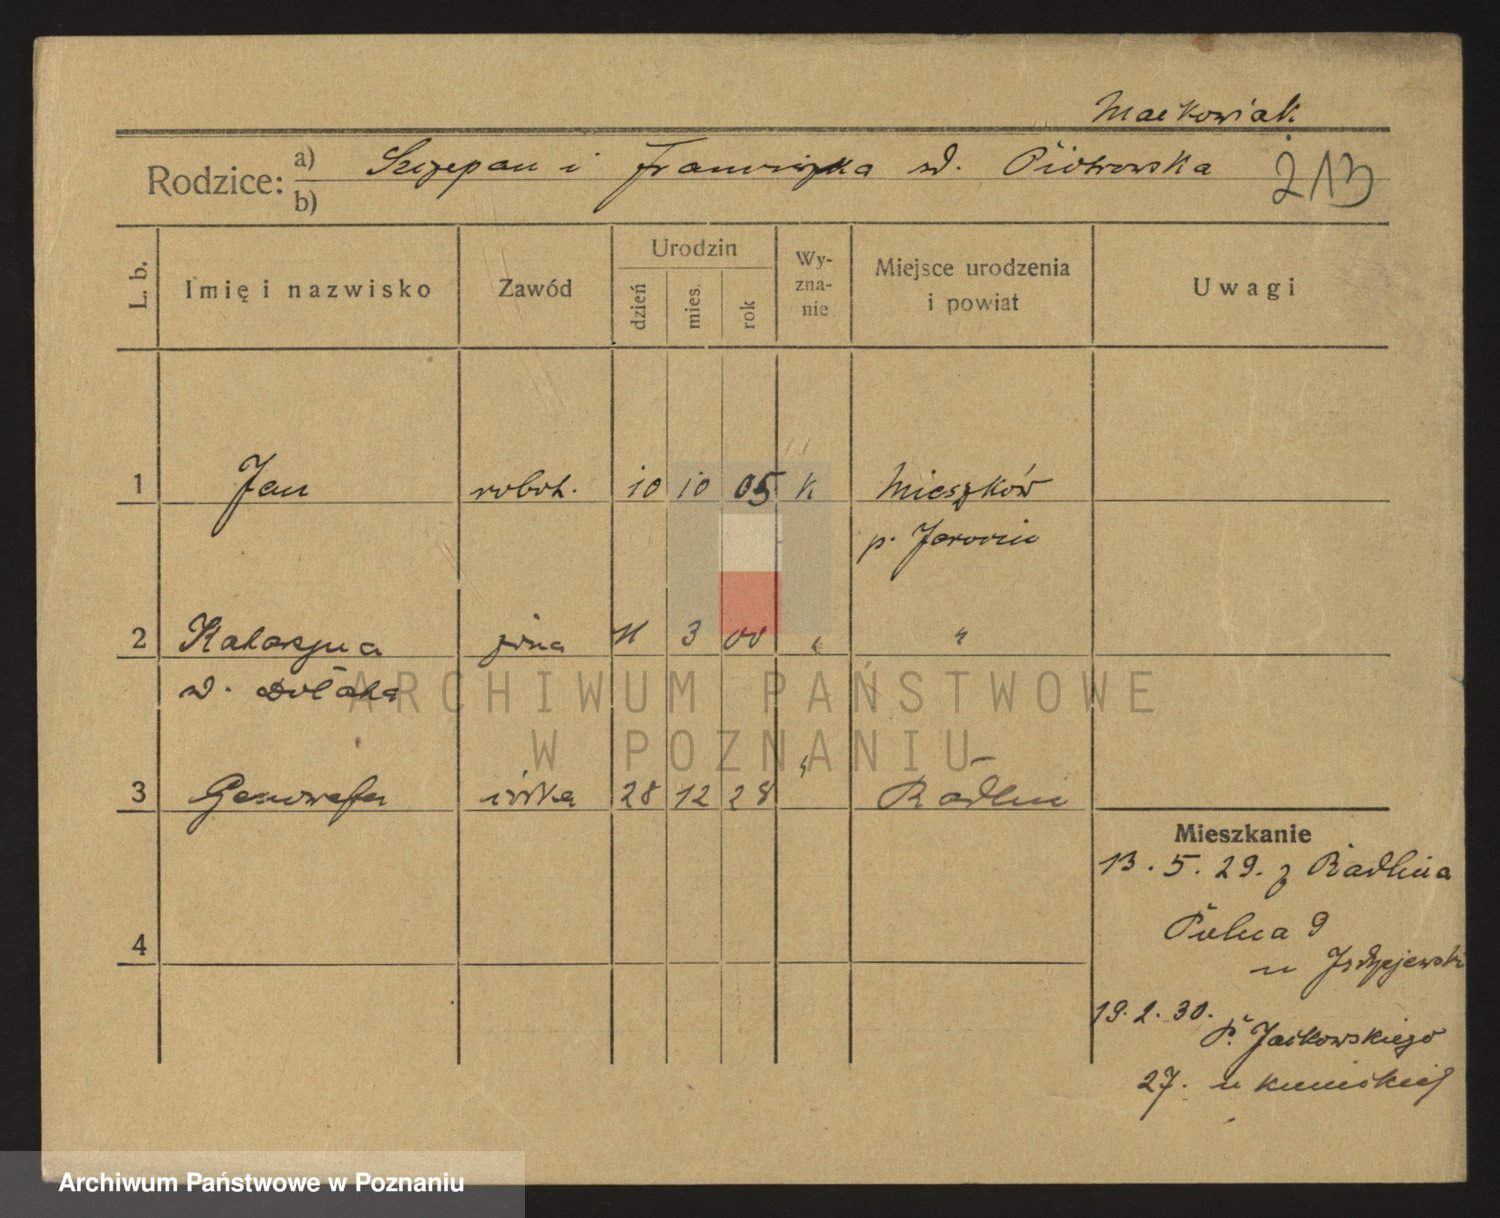 Maćkowiak
Rodzice: a) Szczepan i Franciszka zd. Piotrowska
b)
213
L. b.
Imię i nazwisko
Zawód
Urodzin
dzień
mies.
rok
Wy-
zna-
nie
Miejsce urodzenia
i powiat
Uwagi
1 Jan robot. 10 10 05 K Mieszków
p. Jarocin
2 Katarzyna żona 3 00 " "
3 Genowefa córka 28 12 28 " Radlin
4
Mieszkanie
13. 5. 29. z Radlina
Polna 9
u
19. 2. 30.
P. Jackowskiego
27. u
ARCHIWUM PAŃSTWOWE
W POZNANIU
Archiwum Państwowe w Poznaniu